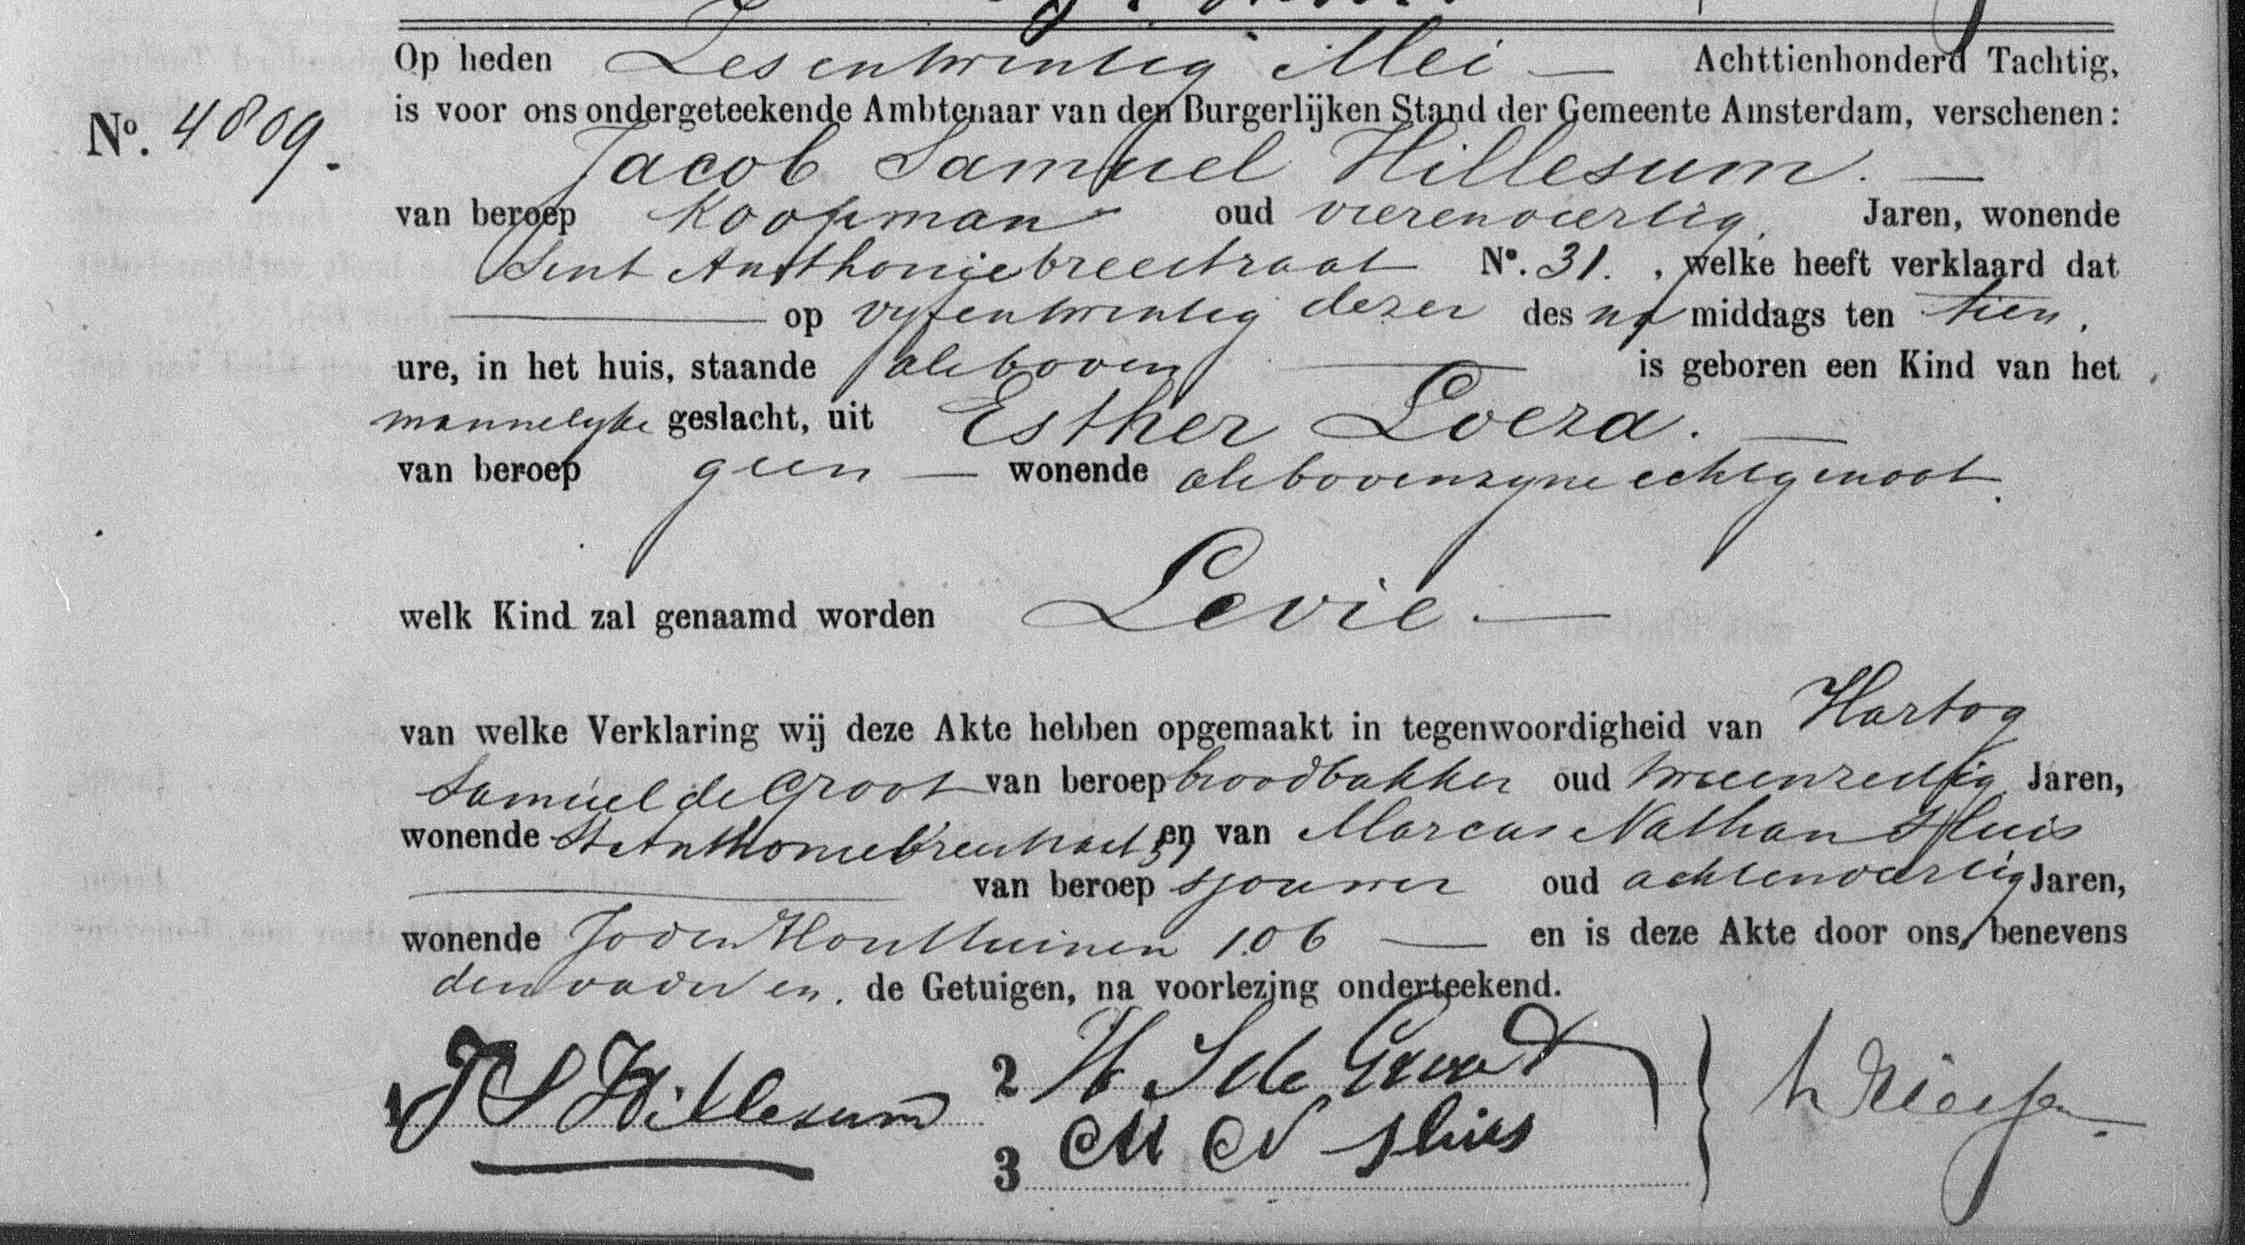 Op heden Zesentwintig Mei — Achttienhonderd Tachtig,
No. 4809.
is voor ons ondergeteekende Ambtenaar van den Burgerlijken Stand der Gemeente Amsterdam, verschenen:
Jacob Samuel Hillesum. —
van beroep Koopman oud vierenveertig, Jaren, wonende
Sint Anthoniebreestraat No. 31. , welke heeft verklaard dat
— op vyfentwintig dezer des na middags ten tien,
ure, in het huis, staande alsboven — is geboren een Kind van het
mannelyke geslacht, uit Esther Loeza. —
van beroep geen — wonende alsboven zyne echtgenoot.
welk Kind zal genaamd worden Levie. —
van welke Verklaring wij deze Akte hebben opgemaakt in tegenwoordigheid van Hartog
Samuel de Groot van beroep broodbakker oud tweeenzestig Jaren,
wonende St Anthoniebreestraat en van Marcus Nathan Sluis
— van beroep sjouwer oud achtenveertig Jaren,
wonende Joden Houttuinen 106 — en is deze Akte door ons, benevens
den vader en. de Getuigen, na voorlezing onderteekend.
1 J S Hillesum
2 H S de Groot
3 M N Sluis